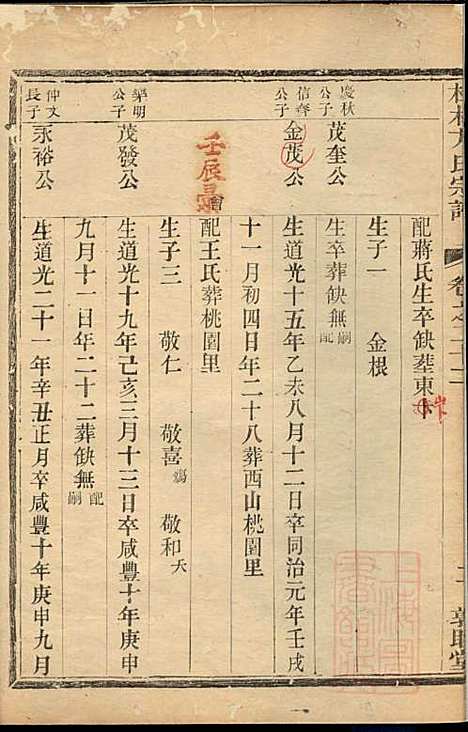 方氏宗譜
卷之二十二
二
配蔣氏生卒缺塟東
生子一 金根
慶秋公子
茂奎公
生卒葬缺無嗣配
信齊公子
金茂公
生道光十五年乙未八月十二日卒同治元年壬戌
十一月初四日年二十八葬西山桃園里
壬辰
配王氏葬桃園里
生子三 敬仁 敬喜殤 敬和夭
犖明公子
茂發公
生道光十九年己亥三月十三日卒咸豐十年庚申
九月十一日年二十二葬缺無嗣配
仲文長子
永裕公
生道光二十一年辛丑正月卒咸豐十年庚申九月